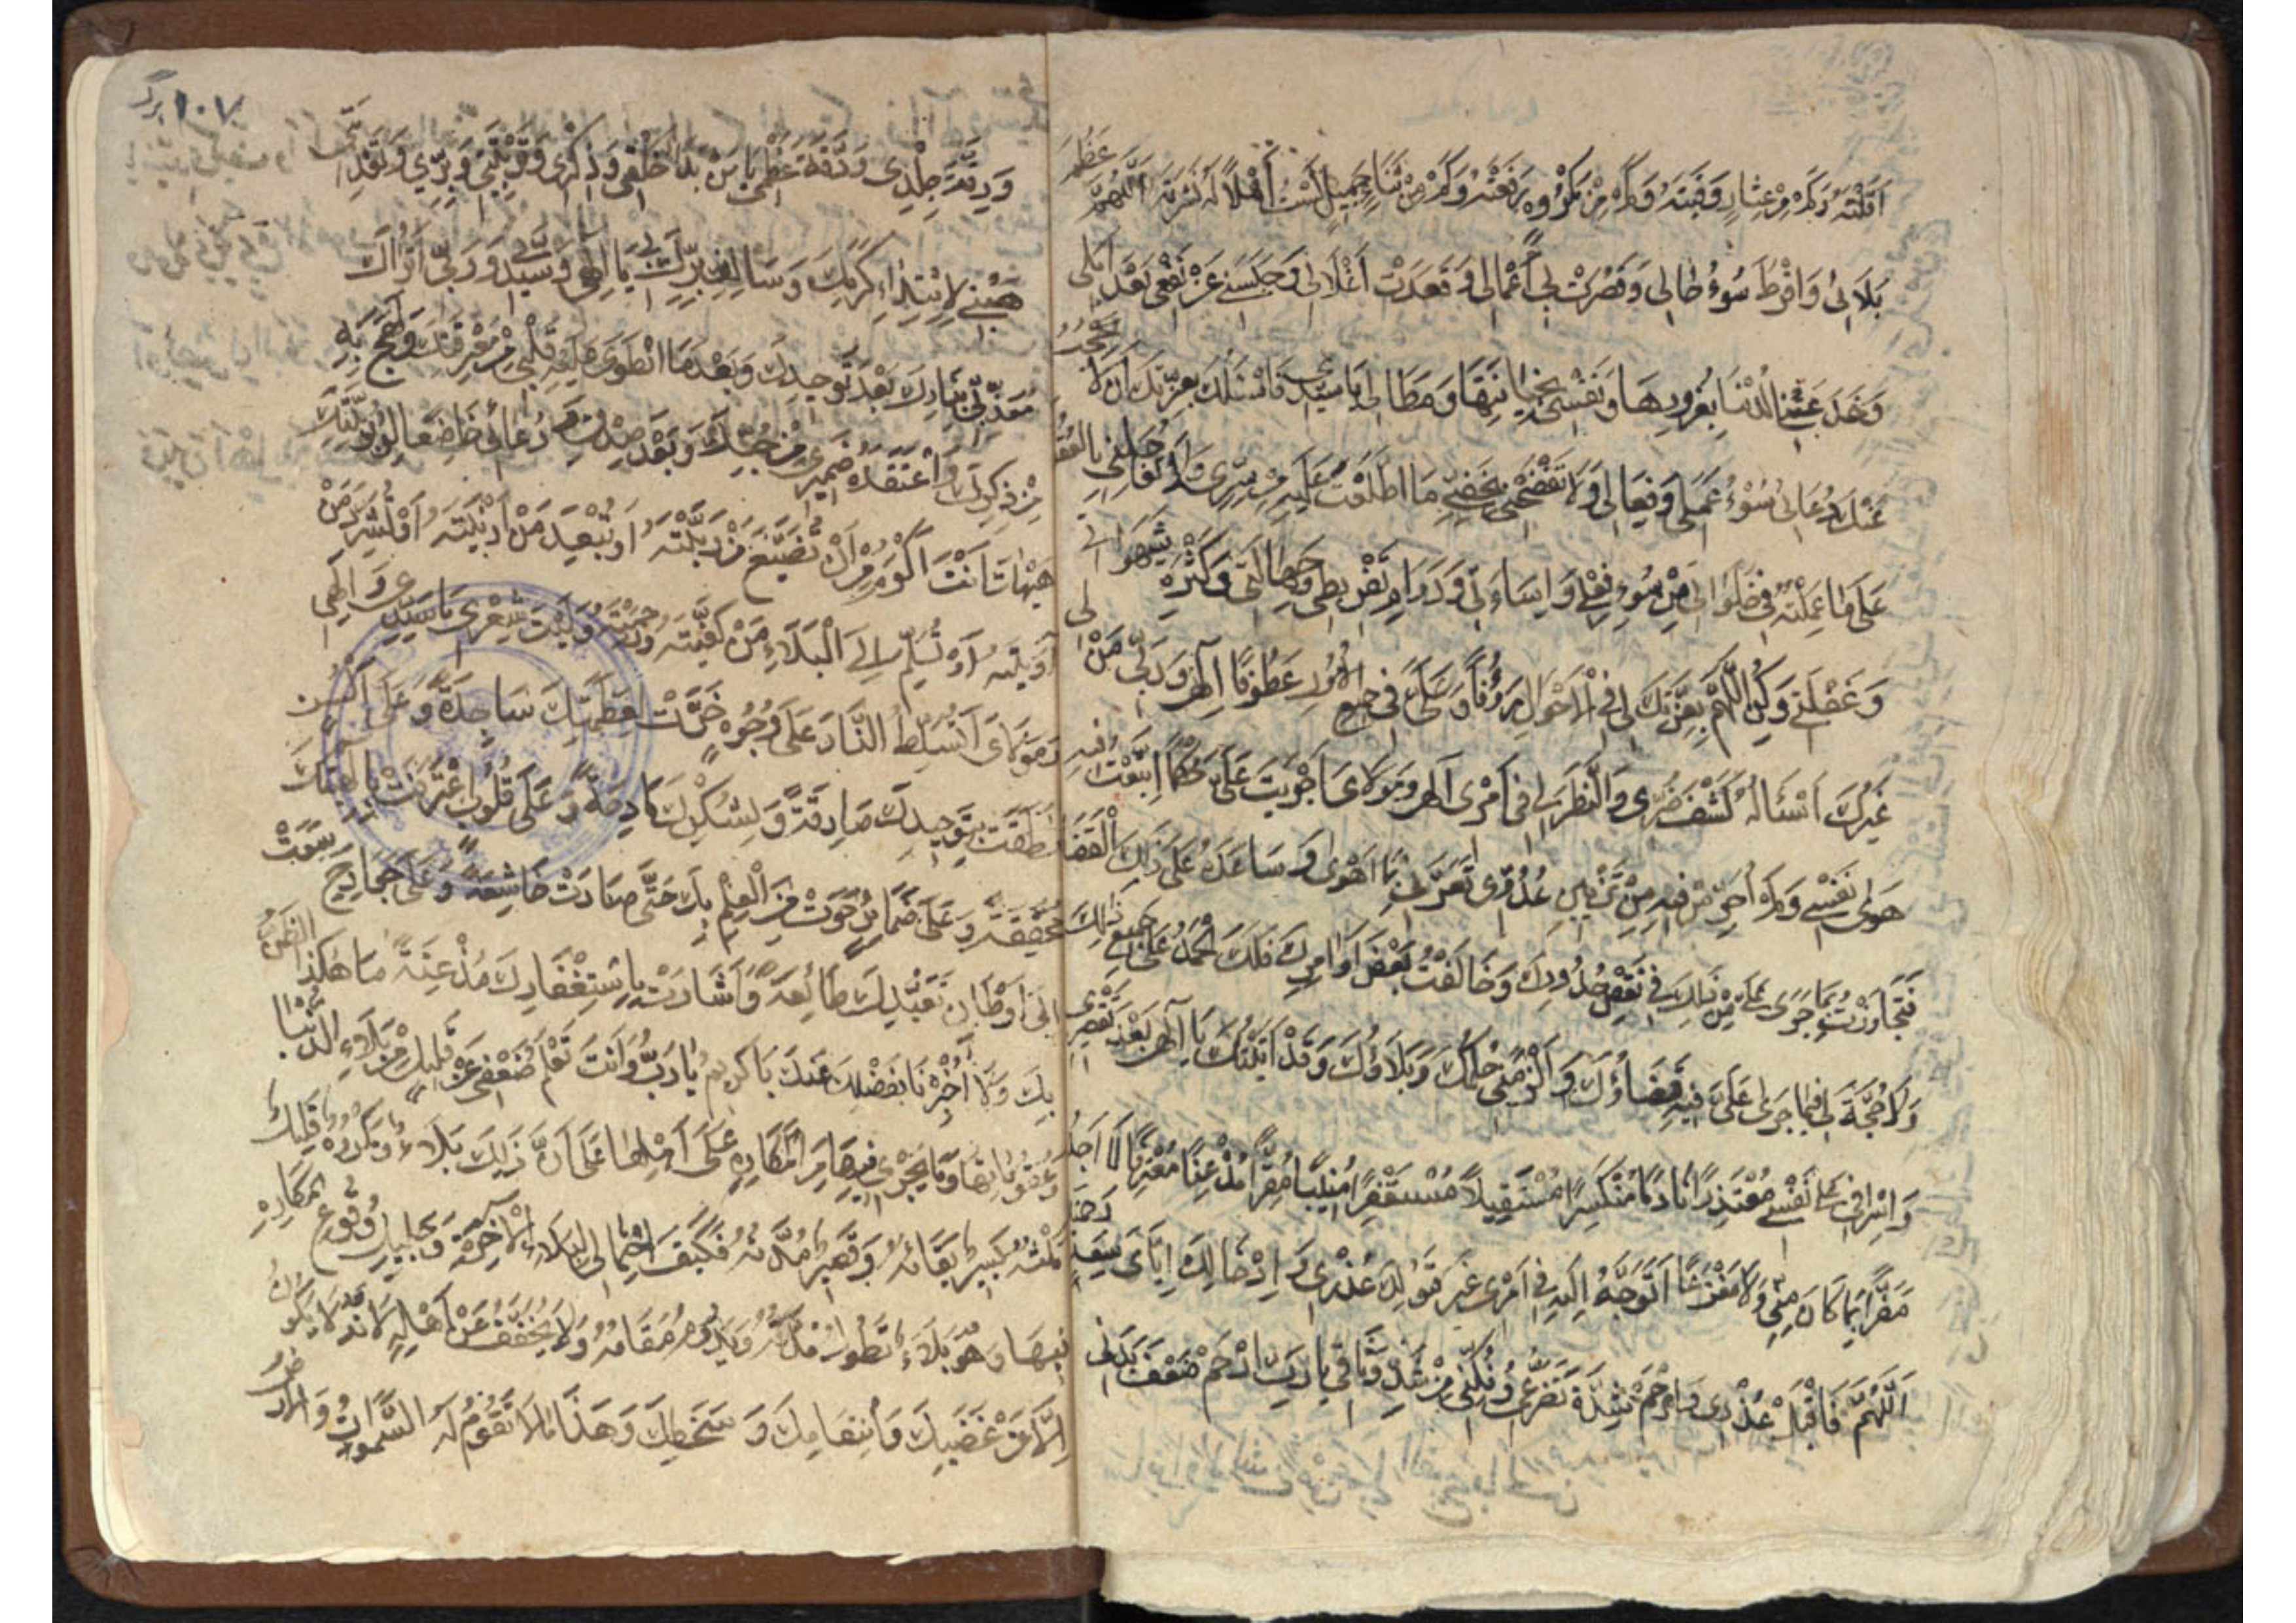 اَقَلْتَهُ وَكَمْ مِنْ عِثَارٍ وَقَيْتَهُ وَكَمْ مِنْ مَكْرُوهٍ دَفَعْتَهُ وَكَمْ مِنْ ثَنَاءٍ جَمِيلٍ لَسْتُ اَهْلاً لَهُ نَشَرْتَهُ اَللّٰهُمَّ عَظُمَ
بَلَائِي وَاَفْرَطَ سُوءُ حَالِي وَقَصُرَتْ بِي اَعْمَالِي وَقَعَدَتْ اَغْلَالِي وَحَبَسَنِي عَنْ نَفْعِي بُعْدُ اَمَلِي
وَخَدَعَتْنِي الدُّنْيَا بِغُرُورِهَا وَنَفْسِي بِخِيَانَتِهَا وَمَطَالِي يَا سَيِّدِي فَاَسْئَلُكَ بِعِزَّتِكَ اَنْ لَا يَحْجُبَ
عَنْكَ دُعَائِي سُوءُ عَمَلِي وَفِعَالِي وَلَا تَفْضَحْنِي بِخَفِيِّ مَا اطَّلَعْتَ عَلَيْهِ مِنْ سِرِّي وَلَا تُعَاجِلْنِي بِالْعُقُوبَةِ
عَلَى مَا عَمِلْتُهُ فِي خَلَوَاتِي مِنْ سُوءِ فِعْلِي وَاِسَاءَتِي وَدَوَامِ تَفْرِيطِي وَجَهَالَتِي وَكَثْرَةِ شَهَوَاتِي
وَغَفْلَتِي وَكُنِ اللّٰهُمَّ بِعِزَّتِكَ لِي فِي الْاَحْوَالِ رَؤُفاً وَعَلَيَّ فِي جَمِيعِ الْاُمُورِ عَطُوفاً اِلٰهِي وَرَبِّي مَنْ لِي
غَيْرُكَ اَسْئَالُهُ كَشْفَ ضُرِّي وَالنَّظَرَ فِي اَمْرِي اِلٰهِي وَمَوْلَايَ اَجْرَيْتَ عَلَيَّ حُكْماً اتَّبَعْتُ فِيهِ
هَوَى نَفْسِي وَلَمْ اَحْتَرِسْ فِيهِ مِنْ تَزْيِينِ عَدُوِّي فَغَرَّنِي بِمَا اَهْوَى وَسَاعَدَهُ عَلَى ذٰلِكَ الْقَضَاءُ
فَتَجَاوَزْتُ بِمَا جَرَى عَلَيَّ مِنْ ذٰلِكَ نَقْضِ حُدُودِكَ وَخَالَفْتُ بَعْضَ اَوَامِرِكَ فَلَكَ الْحَمْدُ عَلَيَّ فِي جَمِيعِ ذٰلِكَ
وَلَا حُجَّةَ لِي فِيمَا جَرَى عَلَيَّ فِيهِ قَضَاؤُكَ وَاَلْزَمَنِي حُكْمُكَ وَبَلَاؤُكَ وَقَدْ اَتَيْتُكَ يَا اِلٰهِي بَعْدَ تَقْصِيرِي
وَاِسْرَافِي عَلَى نَفْسِي مُعْتَذِراً نَادِماً مُنْكَسِراً مُسْتَقِيلاً مُسْتَغْفِراً مُنِيباً مُقِرّاً مُذْعِناً مُعْتَرِفاً لَا اَجِدُ
مَفَرّاً مِمَّا كَانَ مِنِّي وَلَا مَفْزَعاً اَتَوَجَّهُ اِلَيْهِ فِي اَمْرِي غَيْرَ قَبُولِكَ عُذْرِي وَاِدْخَالِكَ اِيَّايَ سَعَةِ رَحْمَتِكَ
اَللّٰهُمَّ فَاقْبَلْ عُذْرِي وَارْحَمْ شِدَّةَ تَضَرُّعِي وَفُكَّنِي مِنْ شَدِّ وَثَاقِي يَا رَبِّ ارْحَمْ ضَعْفَ بَدَنِي
١٠٧ برگ
وَرِقَّةَ جِلْدِي وَدِقَّةَ عَظْمِي يَا مَنْ بَدَأَ خَلْقِي وَذِكْرِي وَتَرْبِيَتِي وَبِرِّي وَتَغْذِيَتِي
هَبْنِي لِابْتِدَاءِ كَرَمِكَ وَسَالِفِ بِرِّكَ بِي يَا اِلٰهِي وَسَيِّدِي وَرَبِّي اَتُرَاكَ
مُعَذِّبِي بِنَارِكَ بَعْدَ تَوْحِيدِكَ وَبَعْدَ مَا انْطَوَى عَلَيْهِ قَلْبِي مِنْ مَعْرِفَتِكَ وَلَهِجَ بِهِ
مِنْ ذِكْرِكَ وَاعْتَقَدَهُ ضَمِيرِي مِنْ حُبِّكَ وَبَعْدَ صِدْقِ دُعَائِي خَاضِعاً لِرُبُوبِيَّتِكَ
هَيْهَاتَ اَنْتَ اَكْرَمُ مِنْ اَنْ تُضَيِّعَ مَنْ رَبَّيْتَهُ اَوْ تُبْعِدَ مَنْ اَدْنَيْتَهُ اَوْ تُشَرِّدَ مَنْ
آوَيْتَهُ اَوْ تُسَلِّمَ اِلَى الْبَلَاءِ مَنْ كَفَيْتَهُ وَرَحِمْتَهُ وَلَيْتَ شِعْرِي يَا سَيِّدِي وَ اِلٰهِي
وَمَوْلَايَ اَتُسَلِّطُ النَّارَ عَلَى وُجُوهٍ خَرَّتْ لِعَظَمَتِكَ سَاجِدَةً وَعَلَى اَلْسُنٍ
نَطَقَتْ بِتَوْحِيدِكَ صَادِقَةً وَبِشُكْرِكَ مَادِحَةً وَعَلَى قُلُوبٍ اعْتَرَفَتْ بِاِلٰهِيَّتِكَ
مُحَقِّقَةً وَعَلَى ضَمَائِرَ حَوَتْ مِنَ الْعِلْمِ بِكَ حَتَّى صَارَتْ خَاشِعَةً وَعَلَى جَوَارِحَ سَعَتْ
اِلَى اَوْطَانِ تَعَبُّدِكَ طَائِعَةً وَاَشَارَتْ بِاسْتِغْفَارِكَ مُذْعِنَةً مَا هٰكَذَا الظَّنُّ
بِكَ وَلَا اُخْبِرْنَا بِفَضْلِكَ عَنْكَ يَا كَرِيمُ يَا رَبِّ وَاَنْتَ تَعْلَمُ ضَعْفِي عَنْ قَلِيلٍ مِنْ بَلَاءِ الدُّنْيَا
وَعُقُوبَاتِهَا وَمَا يَجْرِي فِيهَا مِنَ الْمَكَارِهِ عَلَى اَهْلِهَا عَلَى اَنَّ ذٰلِكَ بَلَاءٌ وَمَكْرُوهٌ قَلِيلٌ
مَكْثُهُ يَسِيرٌ بَقَائُهُ وَقَصِيرٌ مُدَّتُهُ فَكَيْفَ احْتِمَالِي لِبَلَاءِ الْآخِرَةِ وَجَلِيلِ وُقُوعِ الْمَكَارِهِ
فِيهَا وَهُوَ بَلَاءٌ تَطُولُ مُدَّتُهُ وَيَدُومُ مَقَامُهُ وَلَا يُخَفَّفُ عَنْ اَهْلِهِ لِاَنَّهُ لَا يَكُونُ
اِلَّا عَنْ غَضَبِكَ وَانْتِقَامِكَ وَسَخَطِكَ وَهٰذَا مَا لَا تَقُومُ لَهُ السَّمٰوَاتُ وَالْاَرْضُ